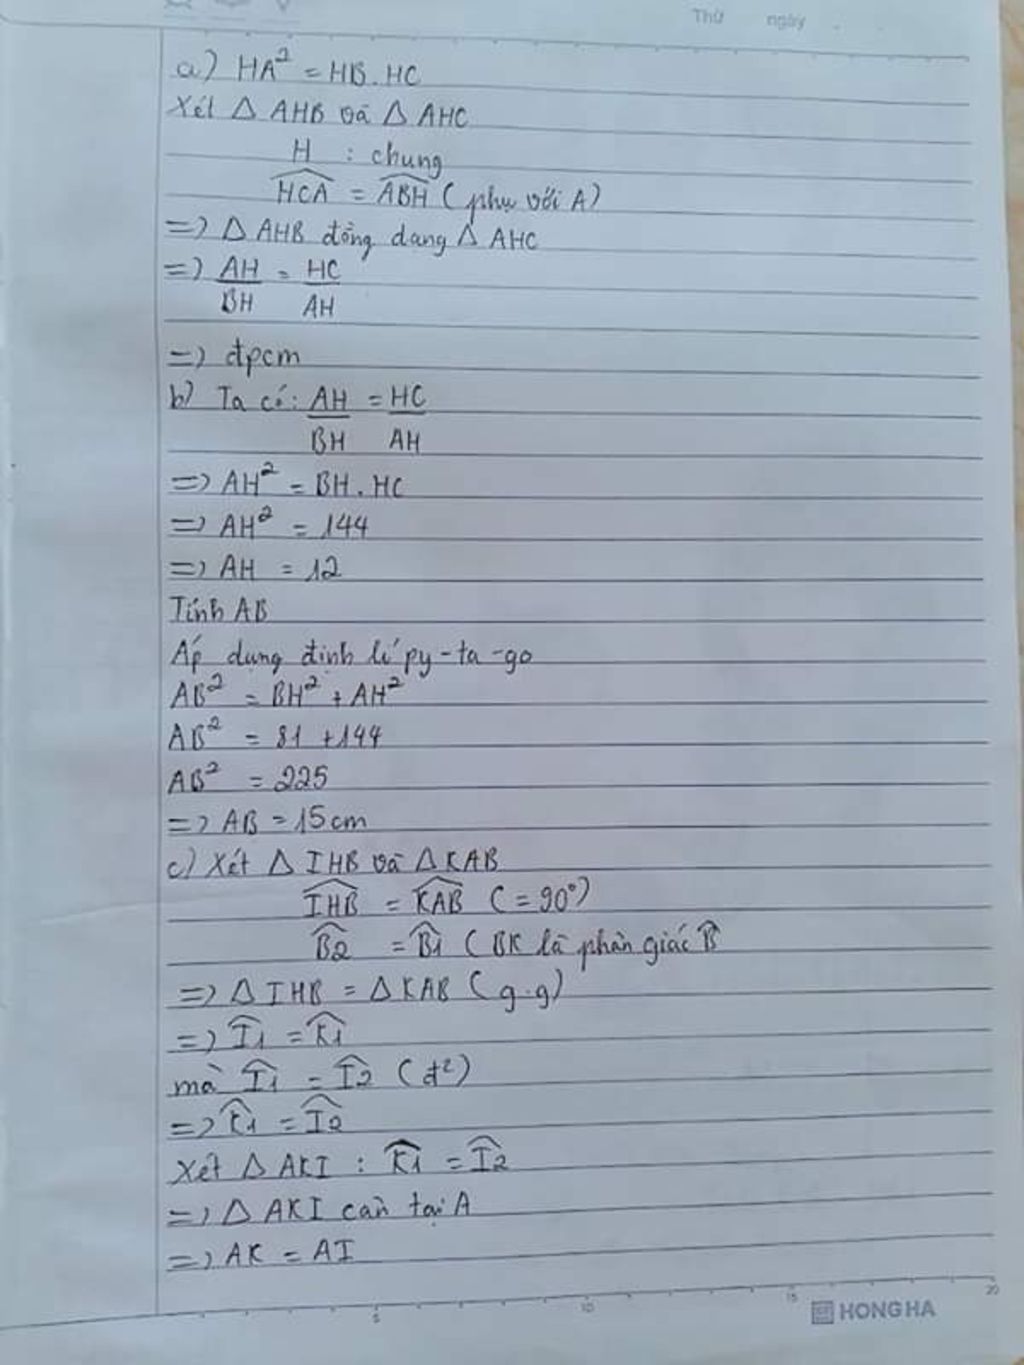 Thứ ngày
a) HA² = HB.HC
Xét △ AHB và △ AHC
H : chung
\widehat{HCA} = \widehat{ABH} (phụ với A)
=> △ AHB đồng dạng △ AHC
=> AH/BH = HC/AH
=> đpcm
b) Ta có: AH/BH = HC/AH
=> AH² = BH.HC
=> AH² = 144
=> AH = 12
Tính AB
Áp dụng định lí py-ta-go
AB² = BH² + AH²
AB² = 81 + 144
AB² = 225
=> AB = 15cm
c) Xét △ IHB và △ KAB
\widehat{IHB} = \widehat{KAB} (= 90°)
\widehat{B2} = \widehat{B1} (BK là phân giác \widehat{B}
=> △ IHB = △ KAB (g.g)
=> \widehat{I1} = \widehat{K1}
mà \widehat{I1} = \widehat{I2} (đ²)
=> \widehat{K1} = \widehat{I2}
Xét △ AKI : \widehat{K1} = \widehat{I2}
=> △ AKI cân tại A
=> AK = AI
5 10 15 20
HONG HA